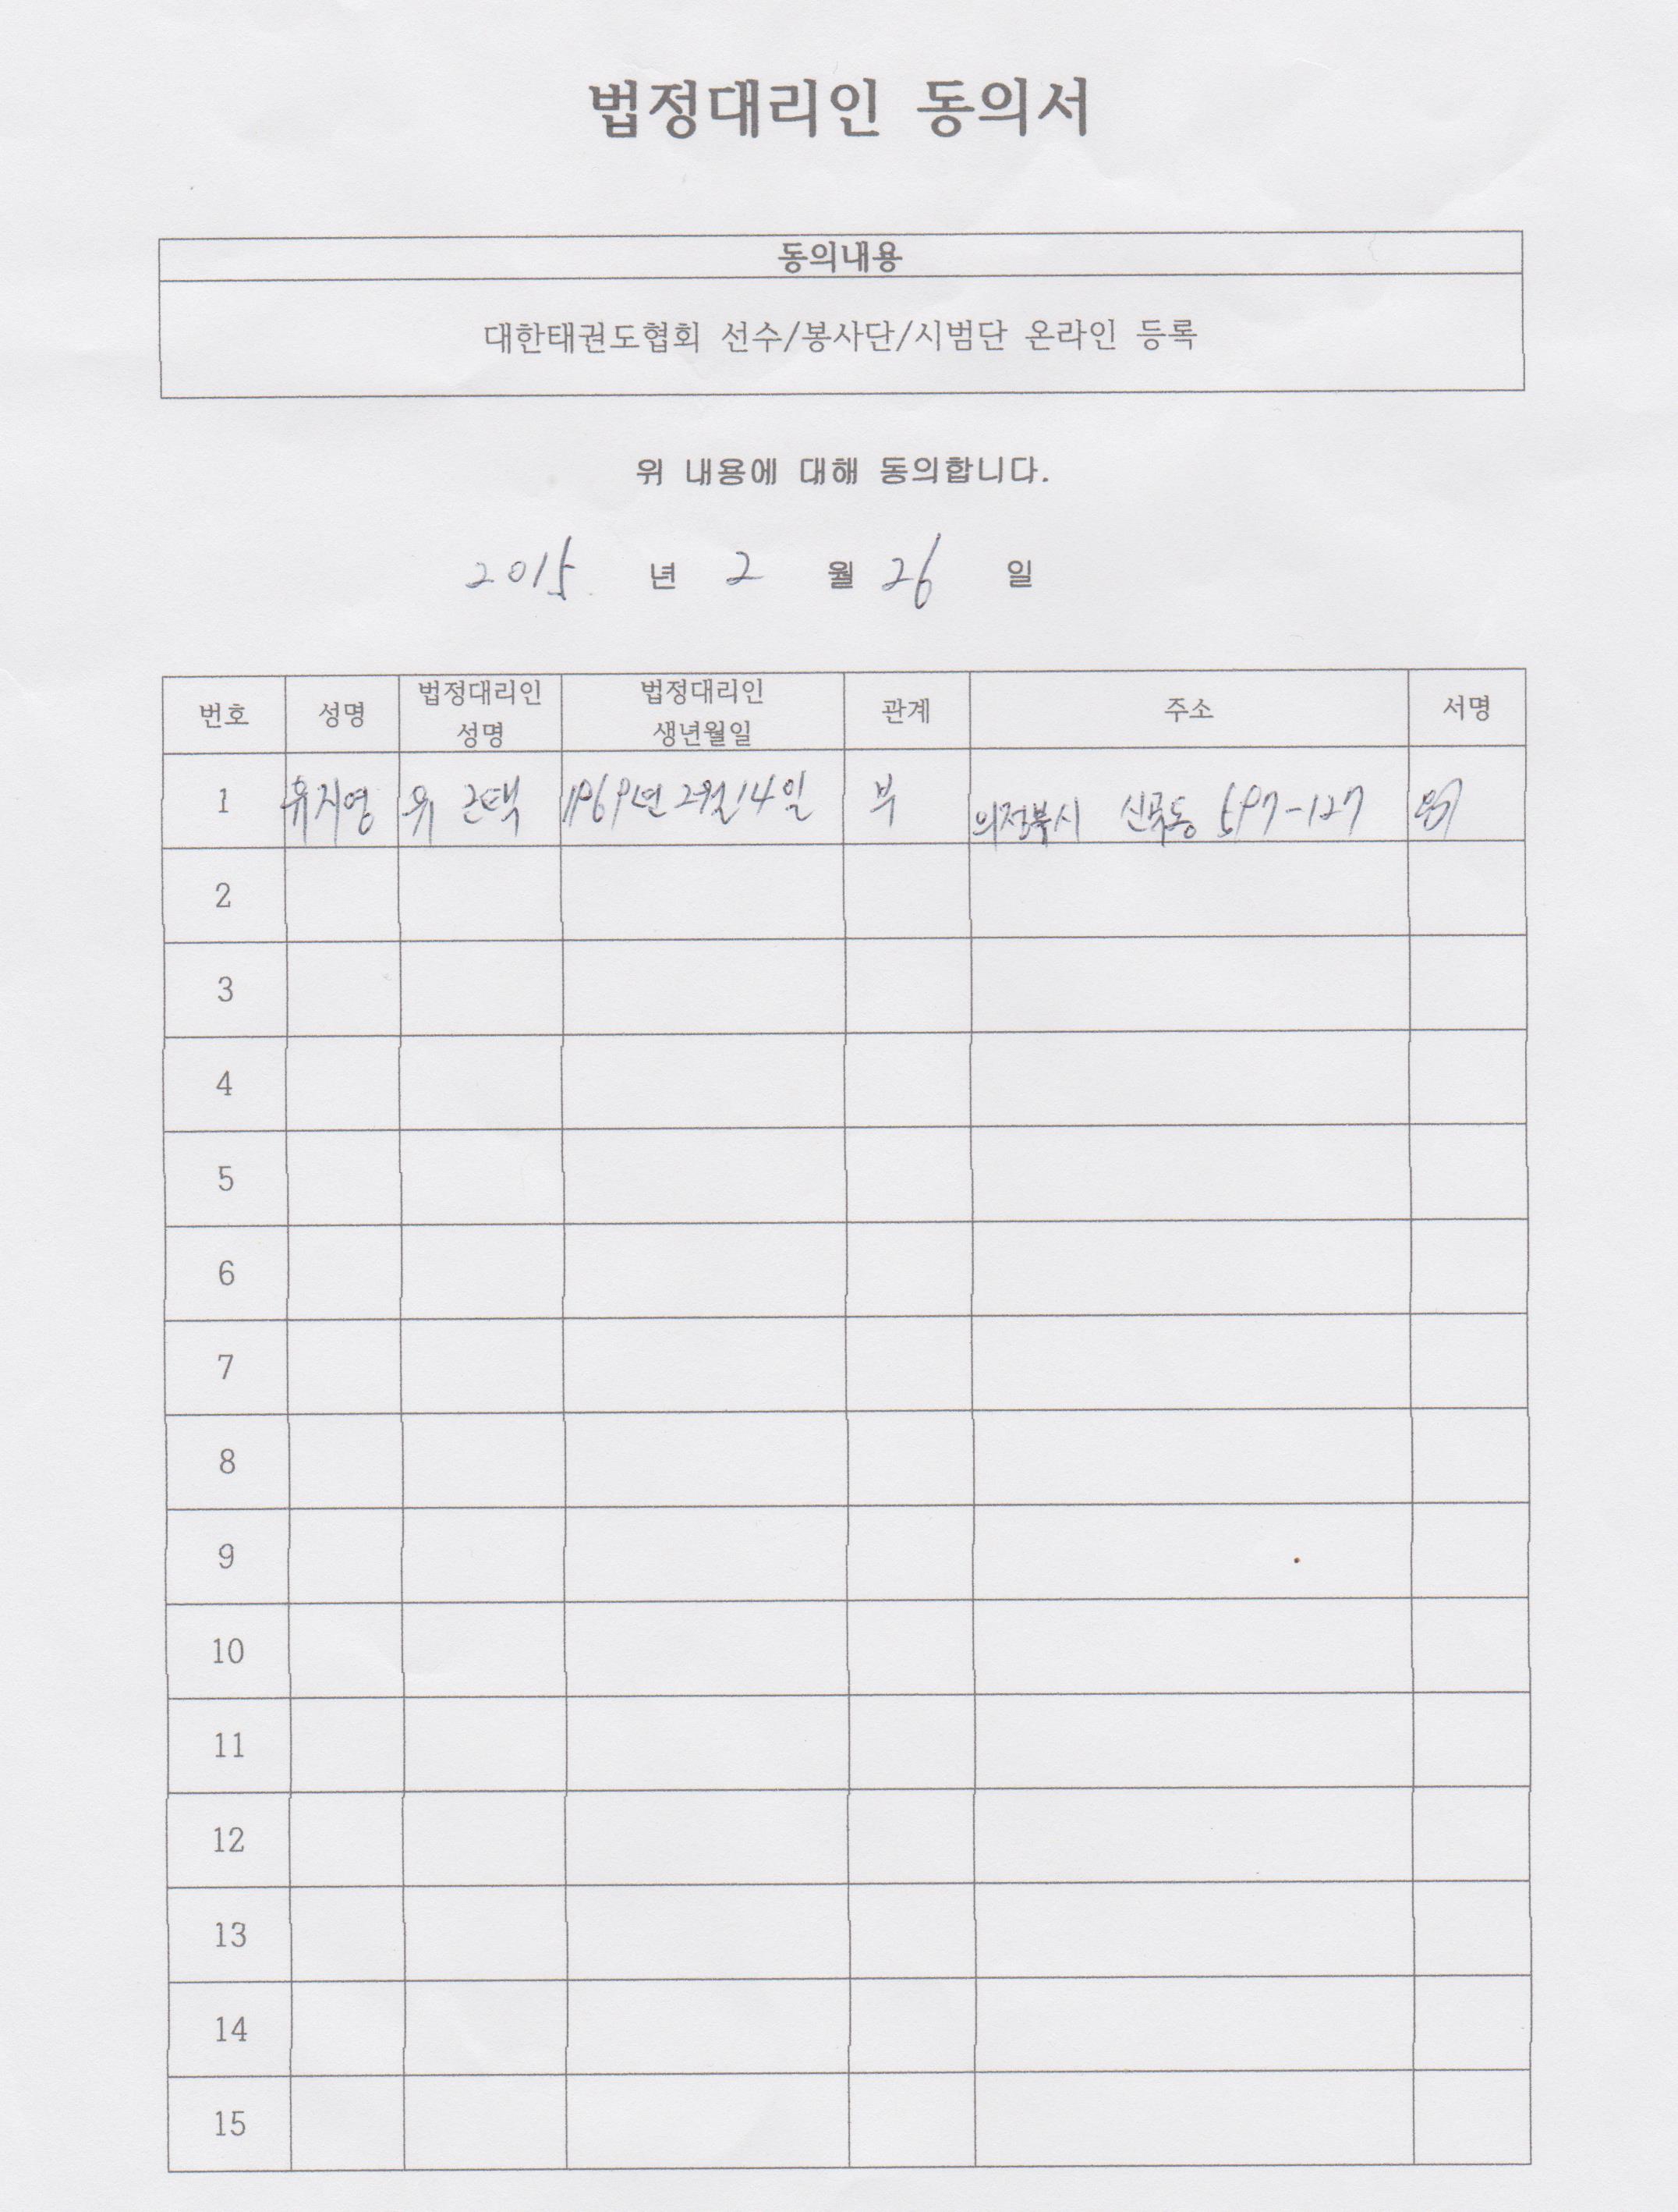 법정대리인 동의서
동의내용
대한태권도협회 선수/봉사단/시범단 온라인 등록
위 내용에 대해 동의합니다.
2015 년 2 월 26 일
번호 성명 법정대리인 성명 법정대리인 생년월일 관계 주소 서명
1 유지영 유 근택 1969년 2월 14일 부 의정부시 신곡동 597-127
2
3
4
5
6
7
8
9
10
11
12
13
14
15